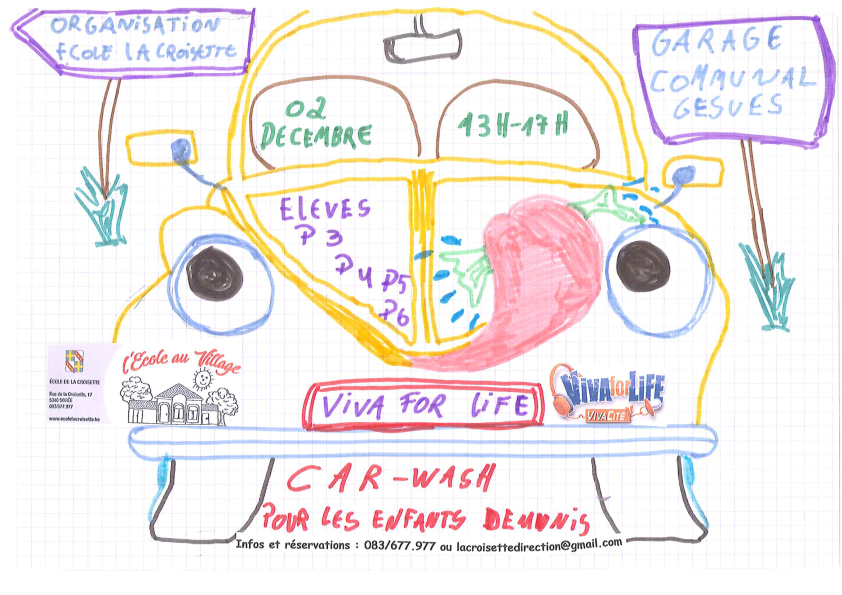 ORGANISATION
ECOLE LA CROISETTE
GARAGE
COMMUNAL
GESVES
02
DECEMBRE
13H-17H
ELEVES
P3
P4 P5
P6
ÉCOLE DE LA CROISETTE
Rue de la Croisette, 17
5340 SORÉE
083/677.977
www.ecolelacroisette.be
l'Ecole au Village
VIVA FOR LIFE
VIVA for LIFE
VIVACITÉ
CAR-WASH
POUR LES ENFANTS DEMUNIS
Infos et réservations : 083/677.977 ou lacroisettedirection@gmail.com